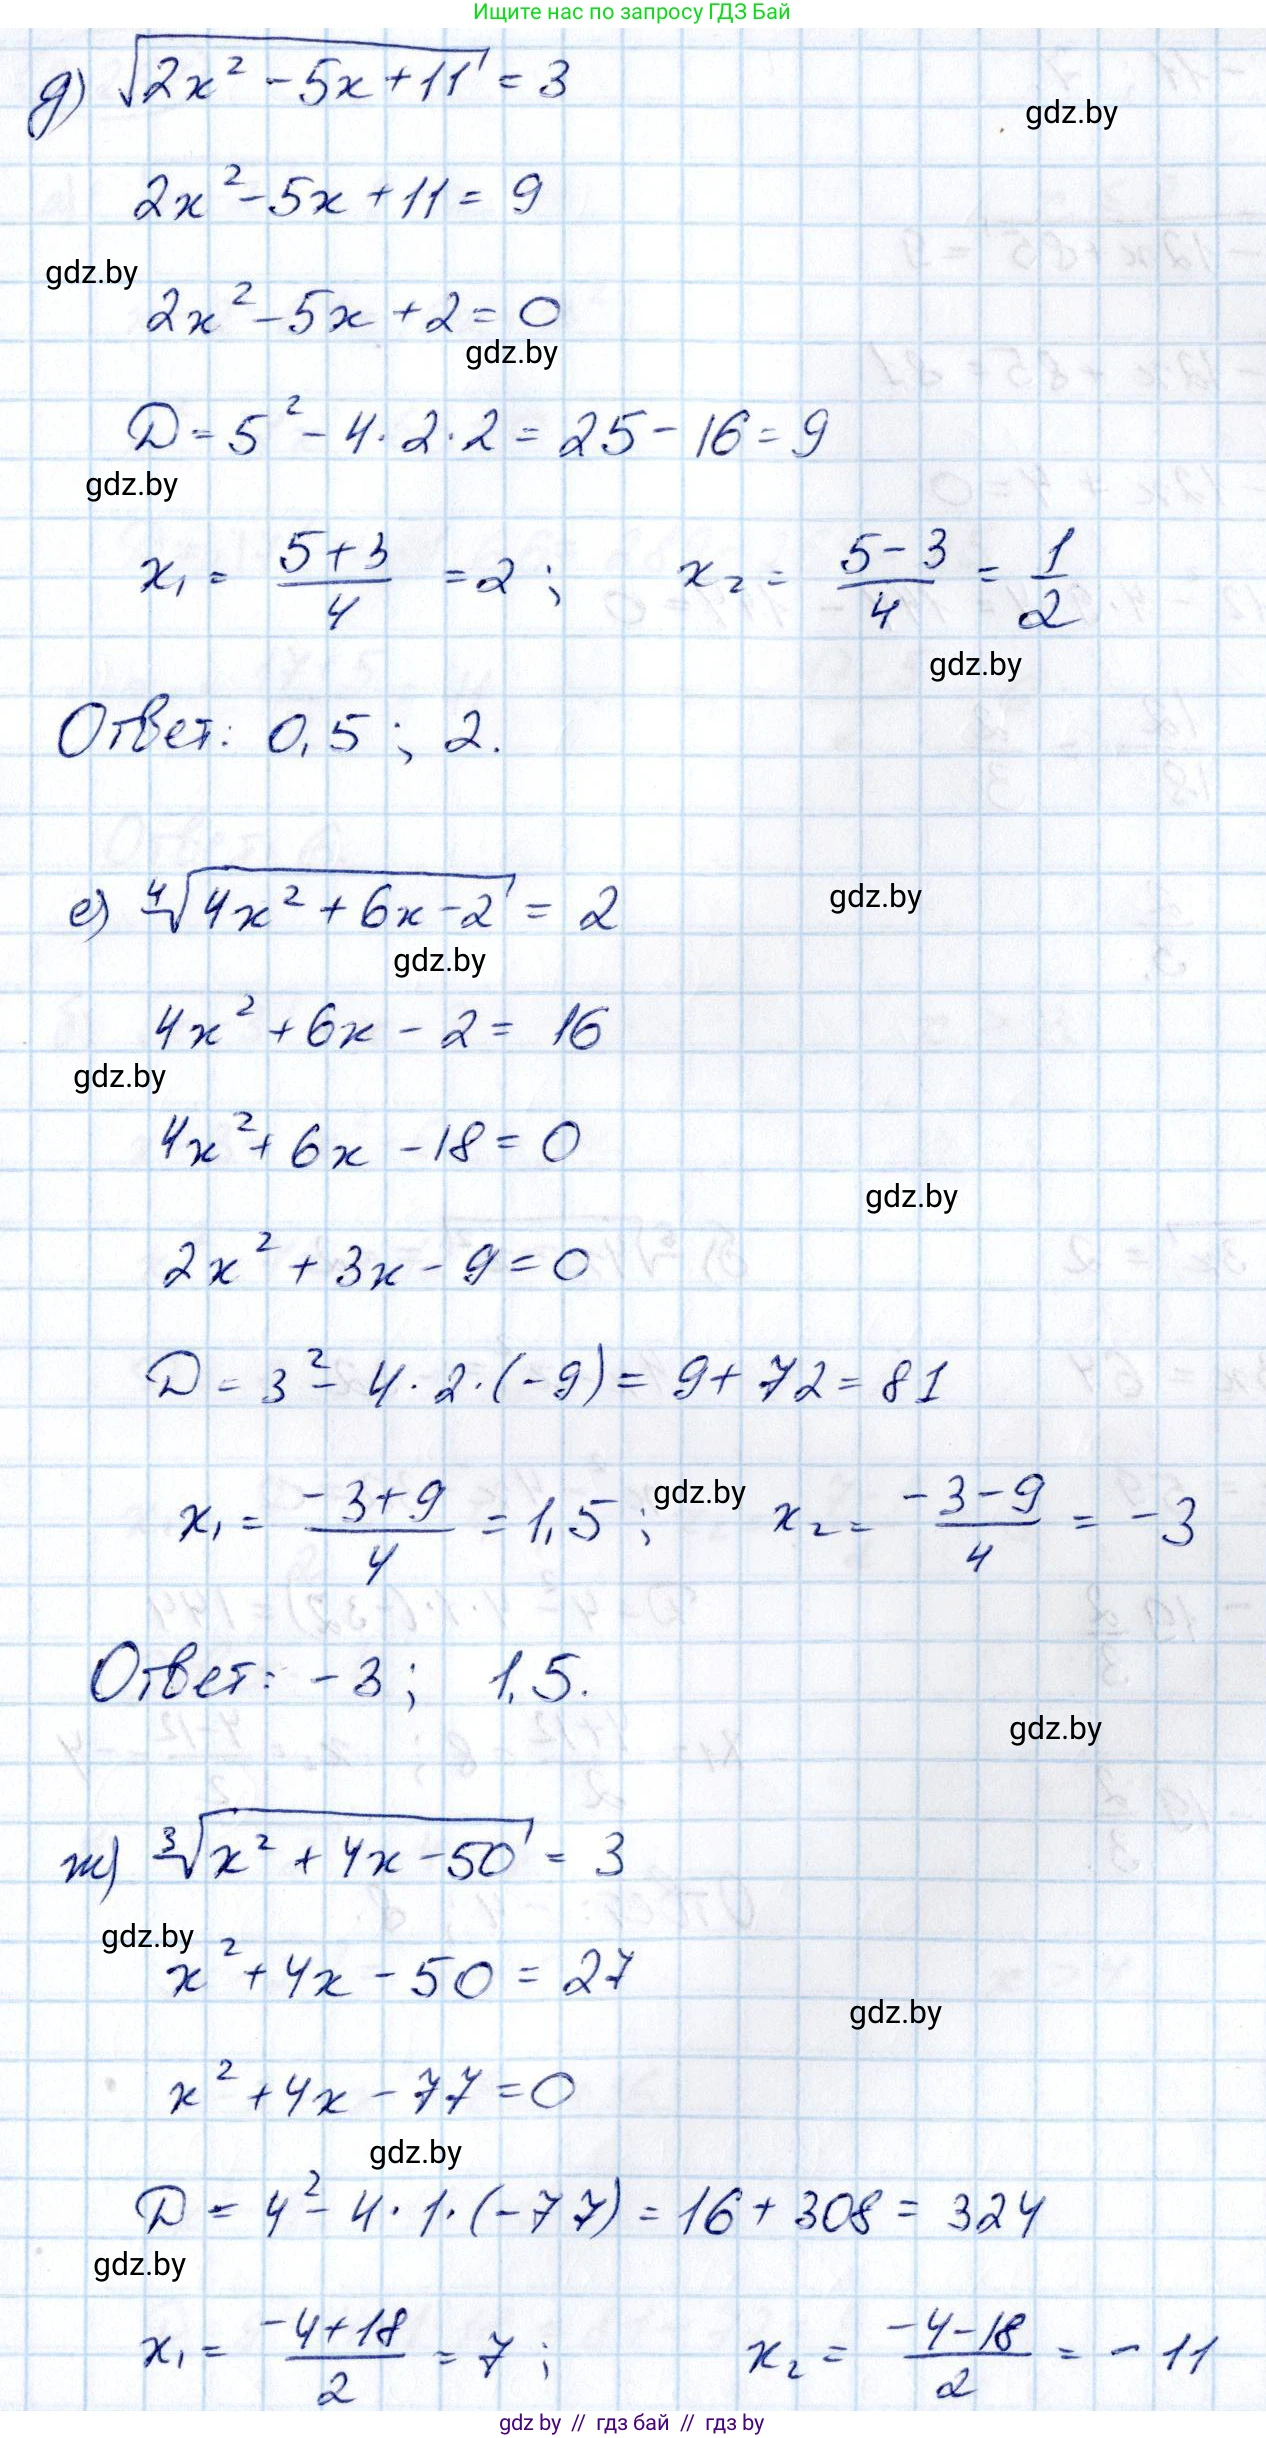 Ищите нас по запросу ГДЗ Бай
д) √(2x² - 5x + 11) = 3
gdz.by
2x² - 5x + 11 = 9
gdz.by
2x² - 5x + 2 = 0
gdz.by
D = 5² - 4 · 2 · 2 = 25 - 16 = 9
gdz.by
x₁ = (5+3)/4 = 2 ; x₂ = (5-3)/4 = 1/2
gdz.by
Ответ: 0,5 ; 2.
е) ⁴√(4x² + 6x - 2) = 2
gdz.by
gdz.by
4x² + 6x - 2 = 16
gdz.by
4x² + 6x - 18 = 0
gdz.by
2x² + 3x - 9 = 0
D = 3² - 4 · 2 · (-9) = 9 + 72 = 81
x₁ = (-3+9)/4 = 1,5 ; gdz.by x₂ = (-3-9)/4 = -3
Ответ: -3 ; 1,5.
gdz.by
ж) ³√(x² + 4x - 50) = 3
gdz.by
x² + 4x - 50 = 27
gdz.by
x² + 4x - 77 = 0
gdz.by
D = 4² - 4 · 1 · (-77) = 16 + 308 = 324
gdz.by
x₁ = (-4+18)/2 = 7 ; x₂ = (-4-18)/2 = -11
gdz by // гдз бай // гдз by